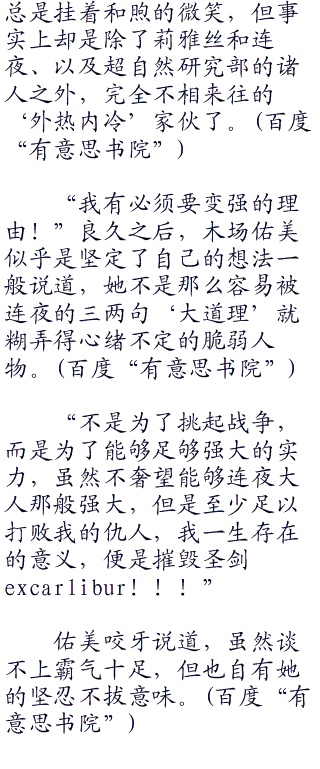 总是挂着和煦的微笑，但事
实上却是除了莉雅丝和连
夜、以及超自然研究部的诸
人之外，完全不相来往的
‘外热内冷’家伙了。(百度
“有意思书院”)
“我有必须要变强的理
由！”良久之后，木场佑美
似乎是坚定了自己的想法一
般说道，她不是那么容易被
连夜的三两句‘大道理’就
糊弄得心绪不定的脆弱人
物。(百度“有意思书院”)
“不是为了挑起战争，
而是为了能够足够强大的实
力，虽然不奢望能够连夜大
人那般强大，但是至少足以
打败我的仇人，我一生存在
的意义，便是摧毁圣剑
excarlibur！！！”
佑美咬牙说道，虽然谈
不上霸气十足，但也自有她
的坚忍不拔意味。(百度“有
意思书院”)